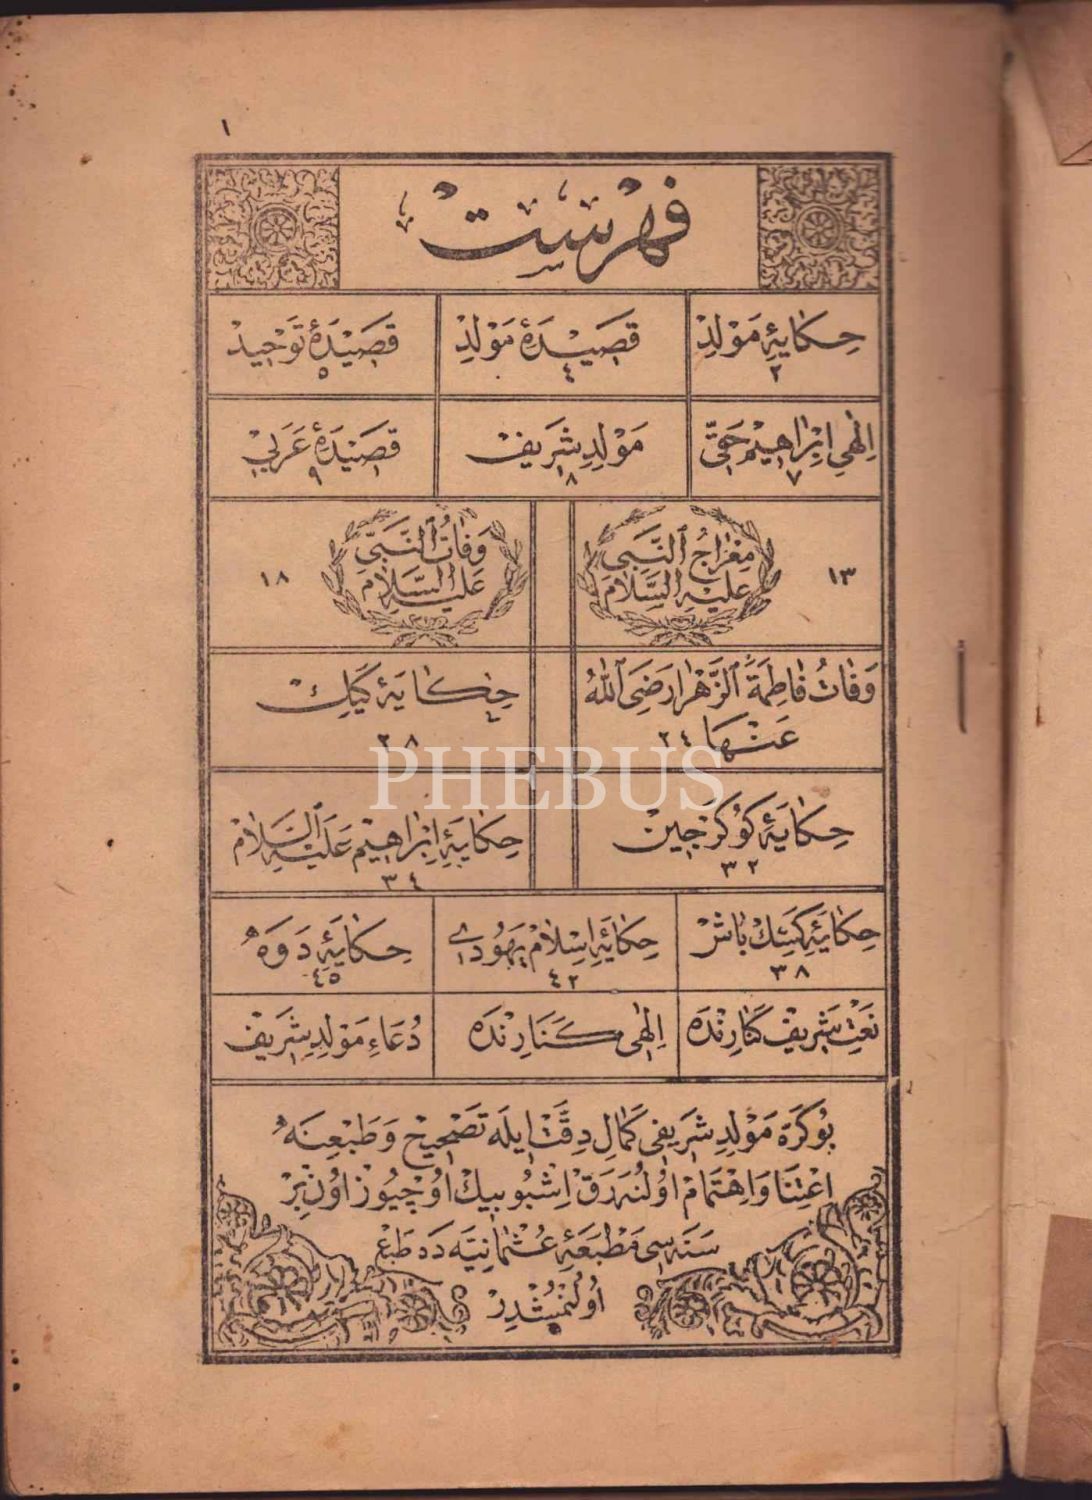 ١
فهرست
حكايهٔ مولد
٢
قصيدهٔ مولد
٤
قصيدهٔ توحيد
٥
الهى ابراهيم حقى
٧
مولد شريف
٨
قصيدهٔ عربى
٩
معراج النبى
عليه السلام
١٣
وفات النبى
عليه السلام
١٨
وفات فاطمة الزهرا رضى الله
عنها ٢٤
حكايهٔ كيك
٢٨
حكايهٔ كوكرجين
٣٢
حكايهٔ ابراهيم عليه السلام
٣٤
حكايهٔ كسك باش
٣٨
حكايهٔ اسلام يهودى
٤٢
حكايهٔ دوه
٤٥
نعت شريف كنارنده
الهى كنارنده
دعاء مولد شريف
بو كره مولد شريفى كمال دقتله تصحيح وطبعنه
اعتنا واهتمام اولنه رق اشبو بيك اوچيوز اون بر
سنه سى مطبعهٔ عثمانيه ده طبع
اولنمشدر
PHEBUS